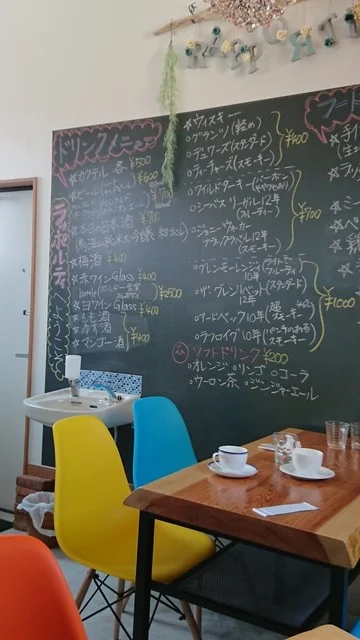 ドリンクメニュー
☆カクテル 各¥500
¥600
¥700
☆本日の日本酒 ¥700
☆梅酒 ¥400
☆赤ワインGlass ¥400
¥2500
☆白ワインGlass ¥400
☆もも酒
☆ゆず酒
☆マンゴー酒
¥400
ラポルティ
☆ウィスキー
○グランツ(軽め)
○デュワーズ(スタンダード)
○ティーチャーズ(スモーキー)
¥400
○ワイルドターキー(バーボン
○シーバスリーガル12年
(フルーティー)
○ジョニーウォーカー
ブラックラベル12年
(スモーキー)
¥700
○グレンモーレンジ 10年(ライトボディ フルーティ)
○ザ・グレンリベット 12年(スタンダード)
○アードベッグ10年(超スモーキー)
○ラフロイグ10年(クセのあるスモーキー)
¥1000
ソフトドリンク ¥200
○オレンジ ○リンゴ ○コーラ
○ウーロン茶 ○ジンジャーエール
フード